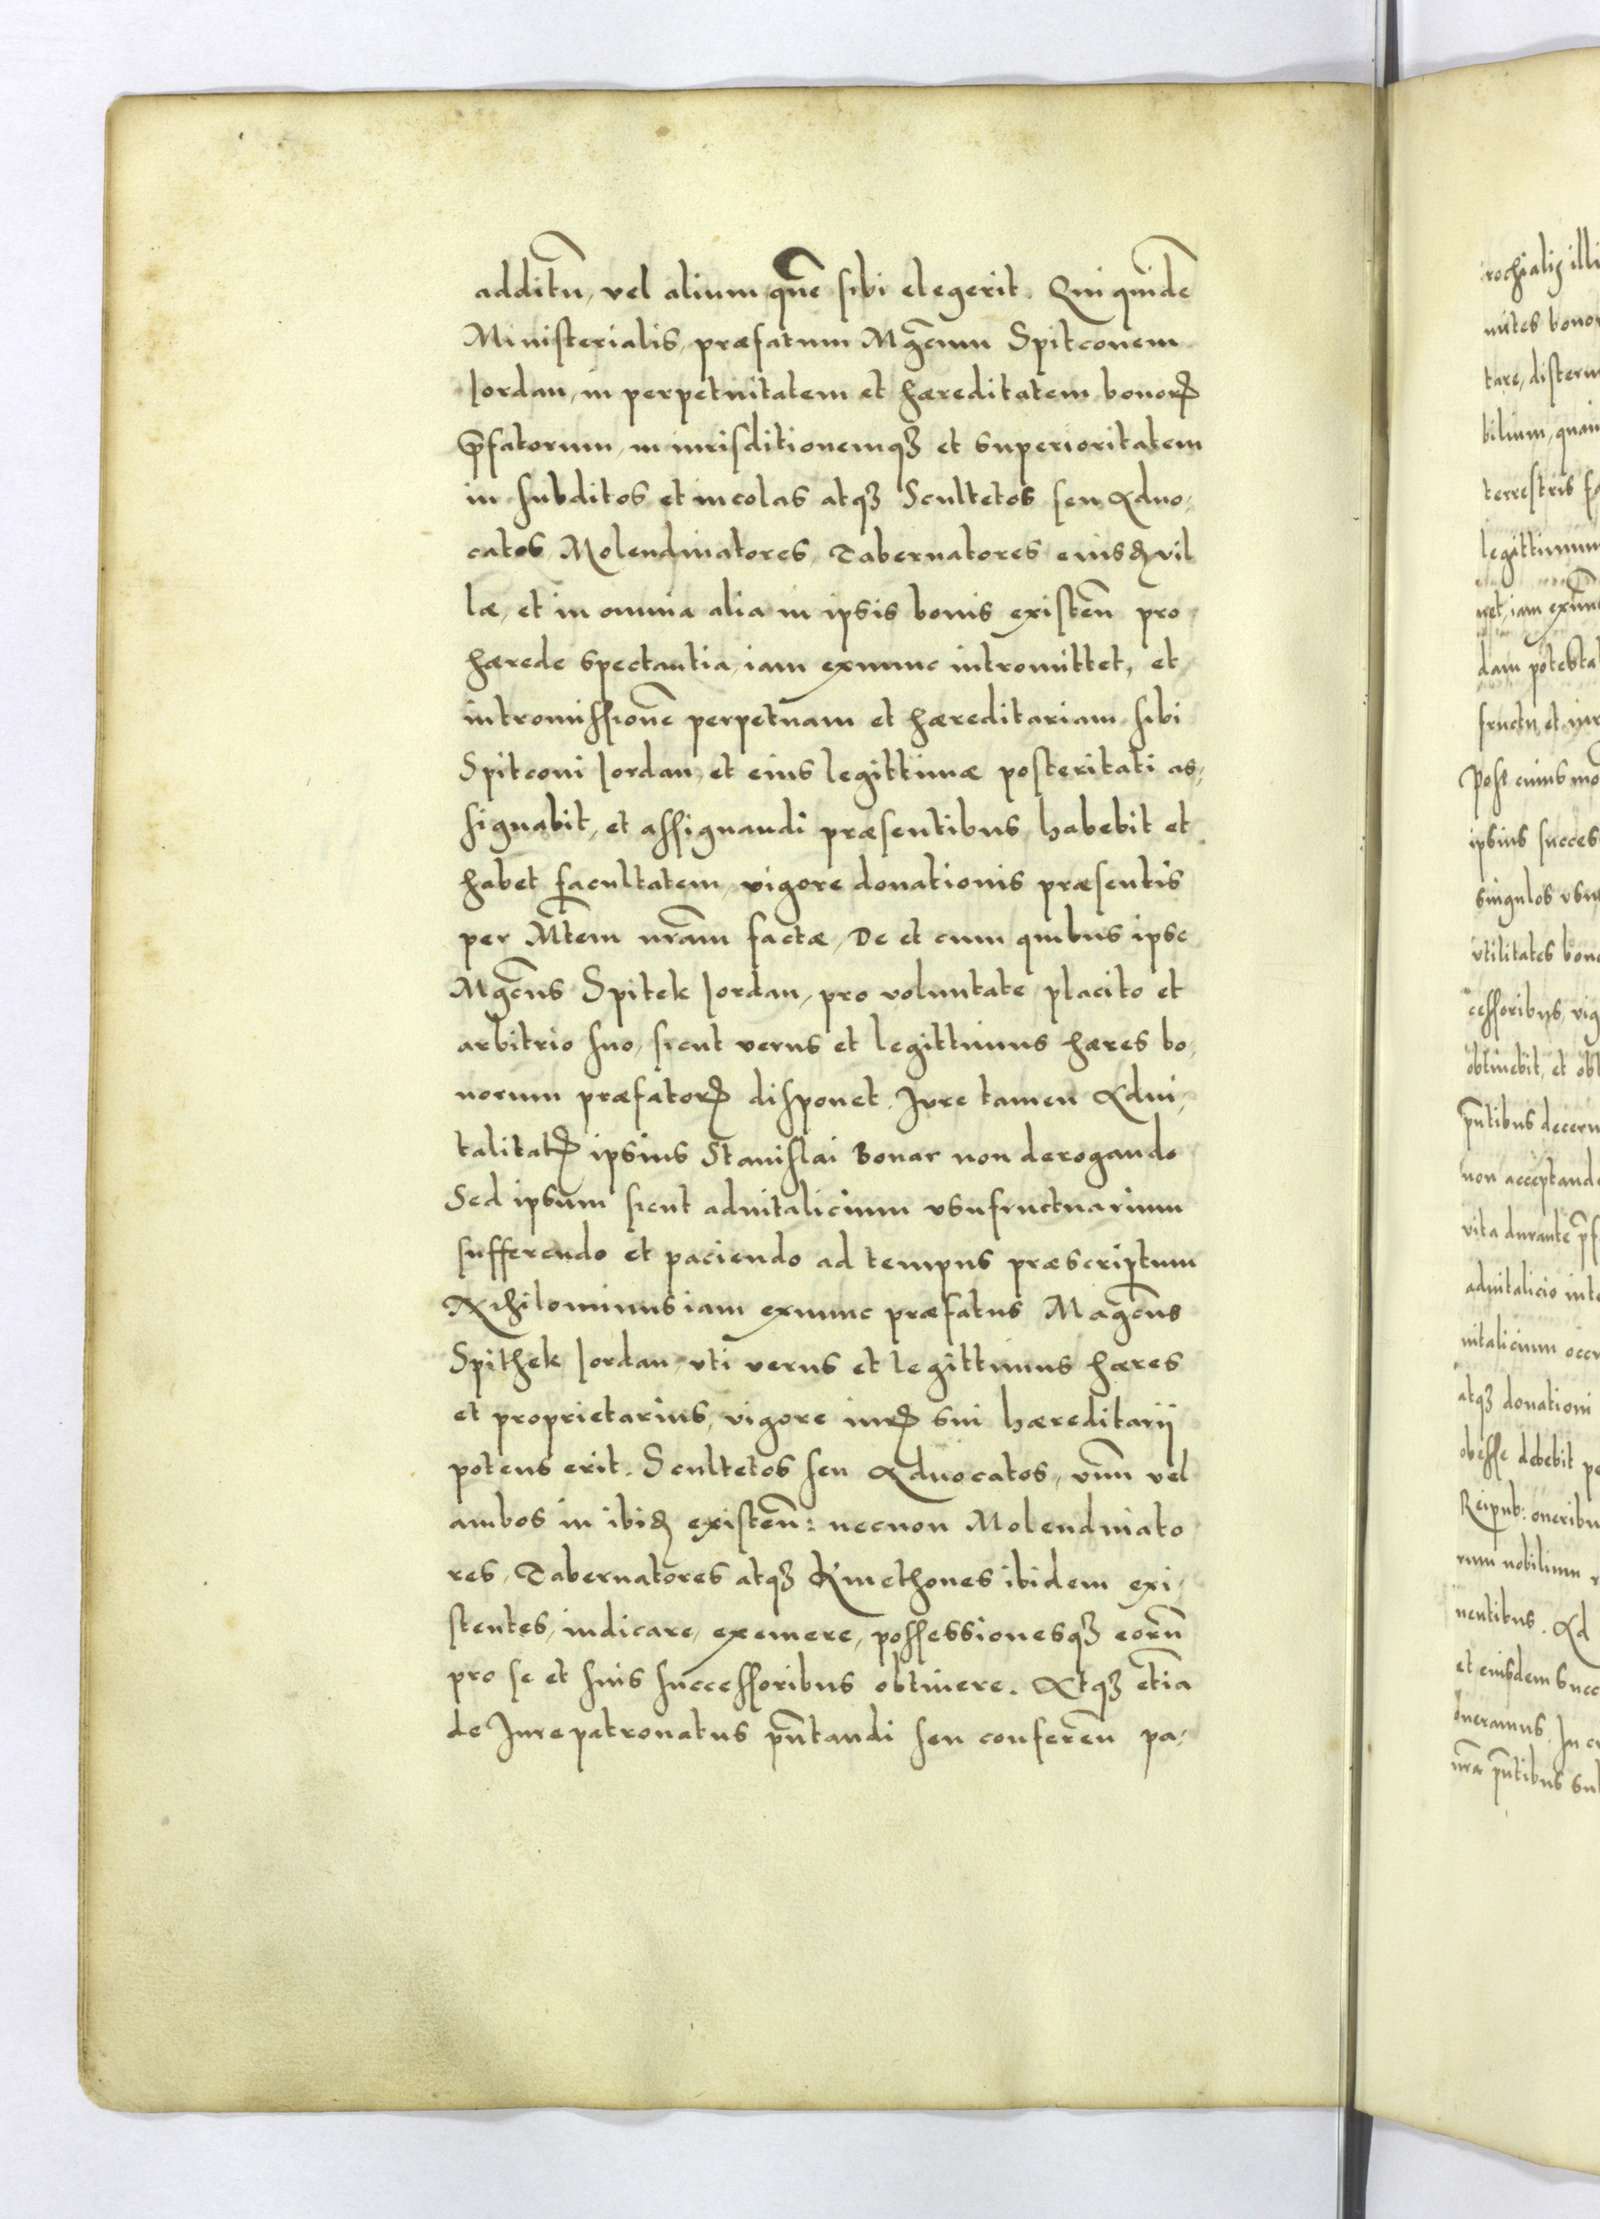 additū, vel alium quē sibi elegerit. Qui quidē
Ministerialis, præfatum Mgcum̄ Spitconem
Jordan, in perpetuitatem et hæreditatem bonorꝝ
p̄fatorum, in iurisditionemqꝫ et superioritatem
in subditos et incolas atqꝫ Scultetos seu Aduo,
catos Molendinatores, Tabernatores eiusdꝫ vil
læ, et in omnia alia in ipsis bonis existen̄ pro
hærede spectantia, iam exnunc intromittet, et
intromissionē perpetuam et hæreditariam sibi
Spitconi Jordan, et eius legittimæ posteritati as,
signabit, et assignandi præsentibus habebit et
habet facultatem, vigore donationis præsentis
per Mtēm nrām factæ, De et cum quibus ipse
Mgcūs Spitek Jordan, pro voluntate placito et
arbitrio suo, sicut verus et legittimus hæres bo,
norum præfatorꝝ disponet. Jure tamen Adui,
talitatꝭ ipsius Stanislai Bonar non derogando
Sed ipsum sicut aduitalicium vsufructuarium
sufferendo et paciendo ad tempus præscriptum
Nihilominus iam exnunc præfatus Magcūs
Spithek Jordan, vti verus et legittimus hæres
et proprietarius, vigore iurꝭ sui hæreditarii
potens erit. Scultetos seu Aduocatos, vnū vel
ambos in ibidꝫ existen̄: necnon Molendinato
res, Tabernatores atqꝫ Kmethones ibidem exi,
stentes, iudicare, exemere, possessionesqꝫ eorū
pro se et suis successoribus obtinere. Atqꝫ etiā
de Jure patronatus p̄ntandi seu conferen̄ pa,
rochialis illi
nites bono
tare, disterm
bilium, quam
terrestris
legittimum
net, iam exnunc
dam potestat
fructu et iur
Post cuius mo
ipsius succes
singulos vsu
vtilitates bono
cessoribus, vig
obtinebit, et obt
p̄ntibus decern
non acceptand
vita durante p̄f
aduitalicio int
uitalicium occu
atqꝫ donationi
obesse debebit pe
Reipub: oneribu
rum nobilium
nentibus. Ad
et eiusdem succ
oneramus. In c
nrā p̄ntibus sub